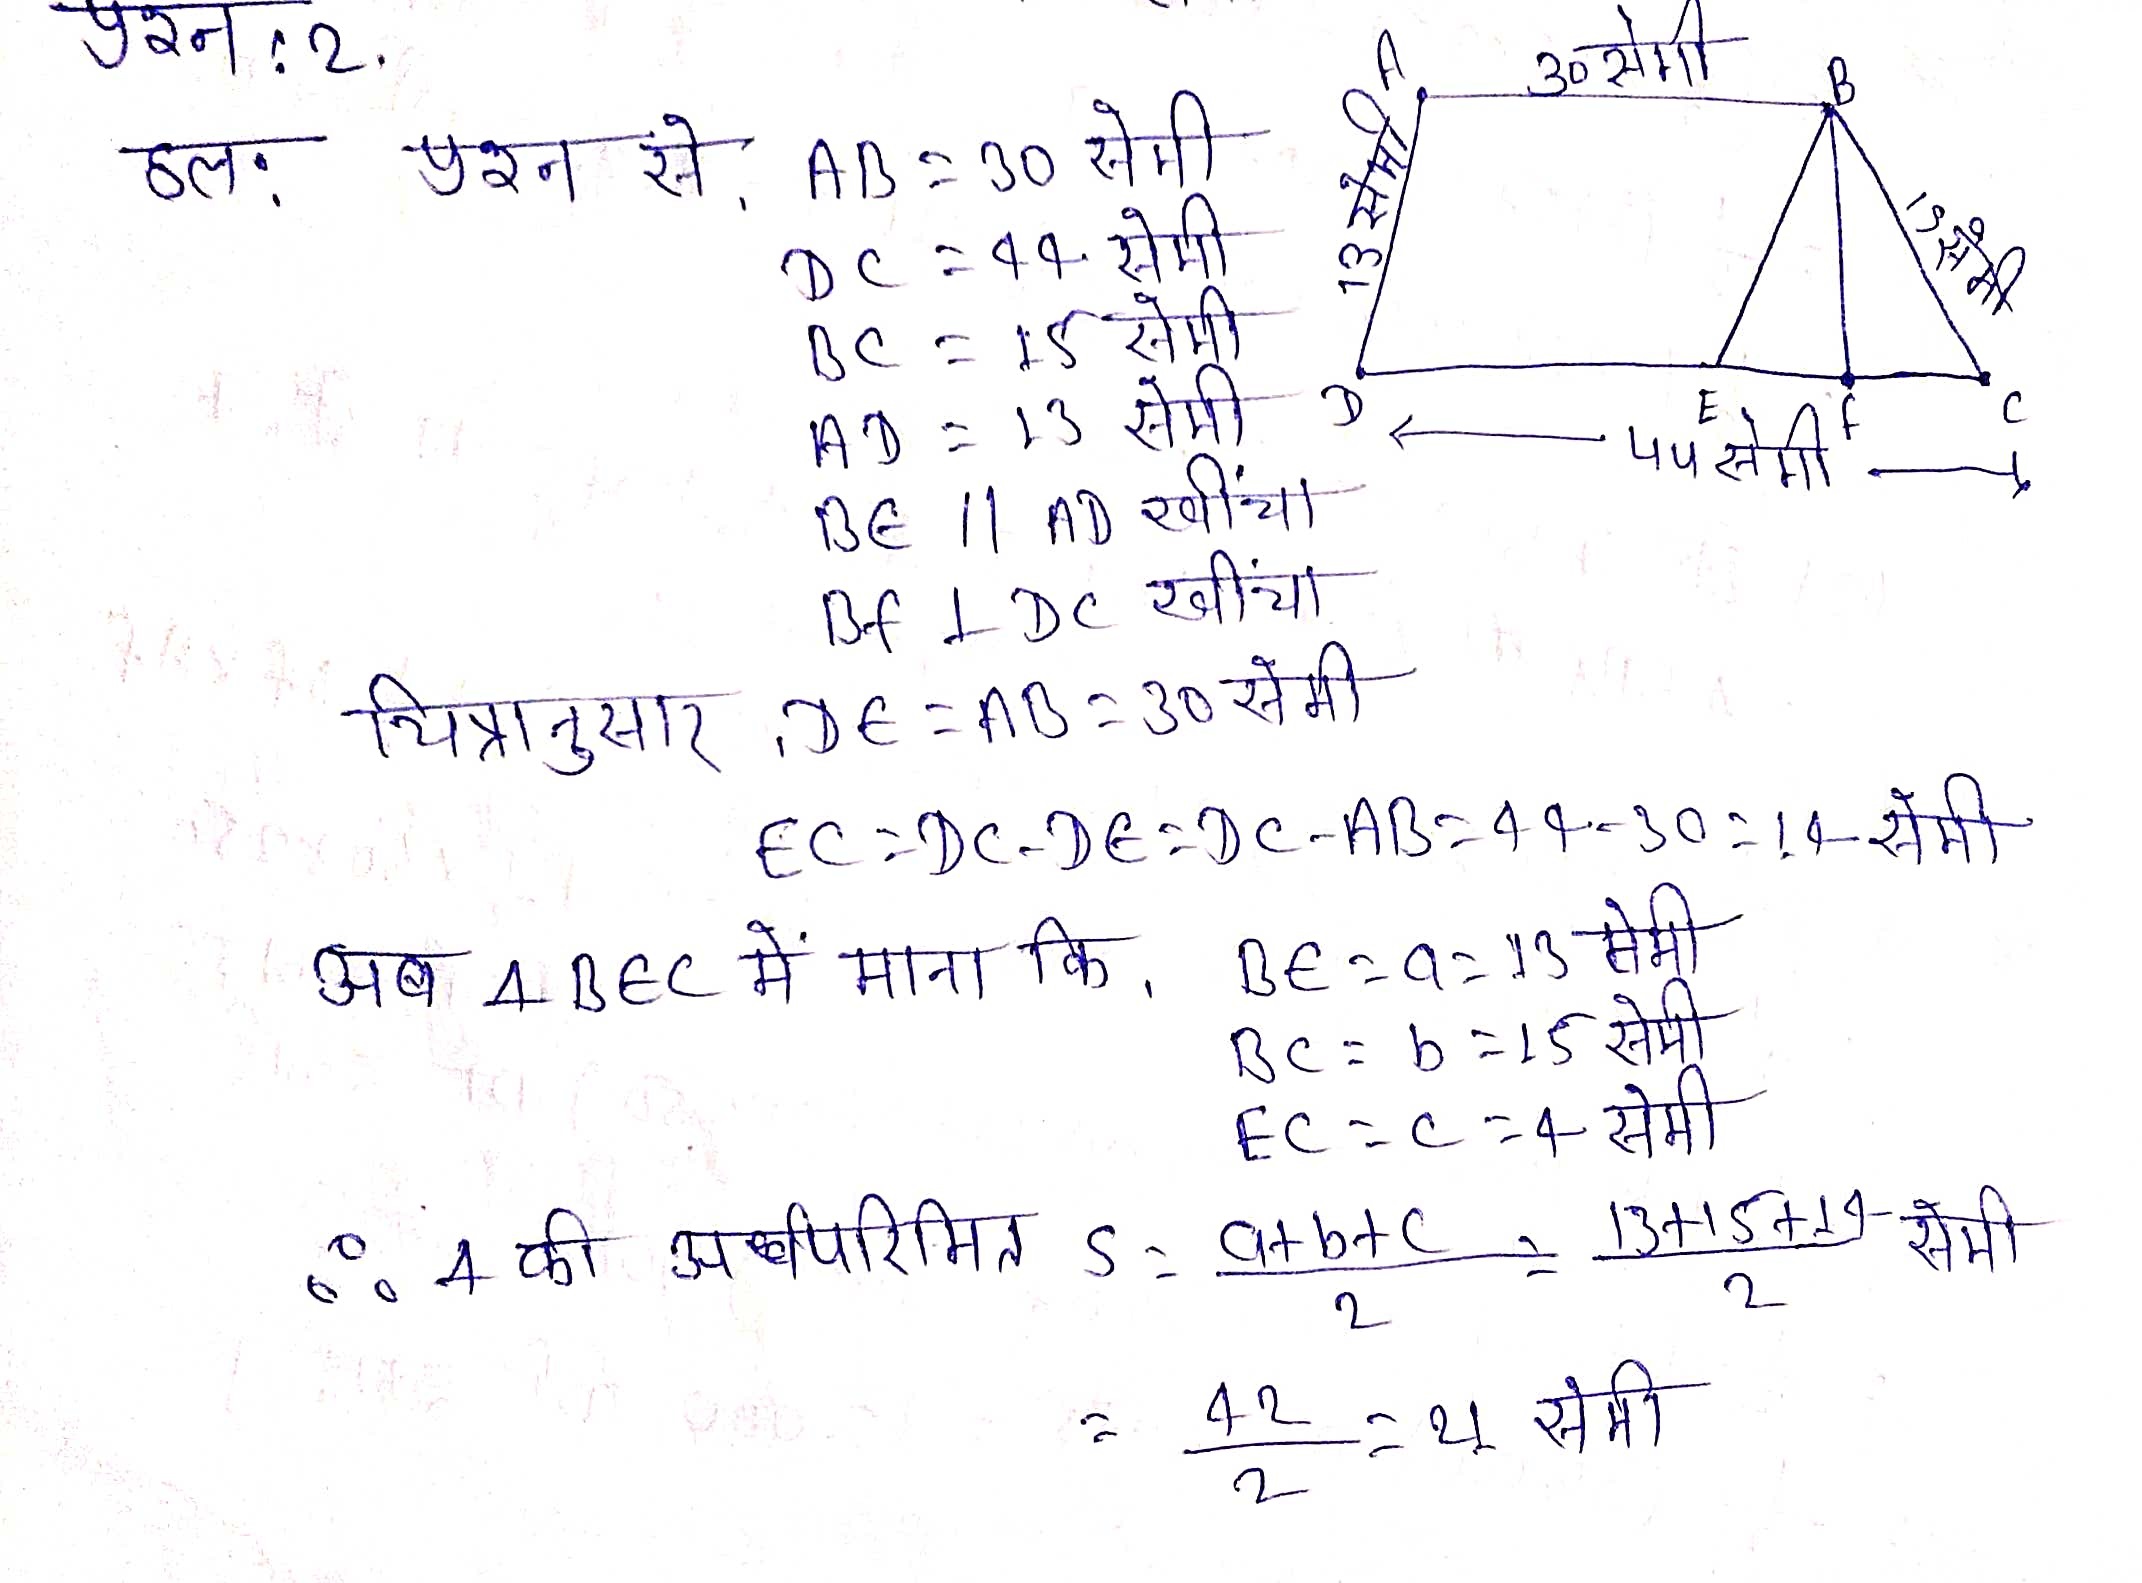 प्रश्न : 2.
हल: प्रश्न से, AB = 30 सेमी
DC = 44 सेमी
BC = 15 सेमी
AD = 13 सेमी
BE || AD खींचा
BF ⊥ DC खींचा
A 30 सेमी B
13 सेमी
सेमी
D E F C
44 सेमी
चित्रानुसार, DE = AB = 30 सेमी
EC = DC - DE = DC - AB = 44 - 30 = 14 सेमी
अब Δ BEC में माना कि, BE = a = 13 सेमी
BC = b = 15 सेमी
EC = c = 4 सेमी
∴ Δ की अर्धपरिमित S = a+b+c / 2 = 13+15+14 / 2 सेमी
= 42 / 2 = 21 सेमी